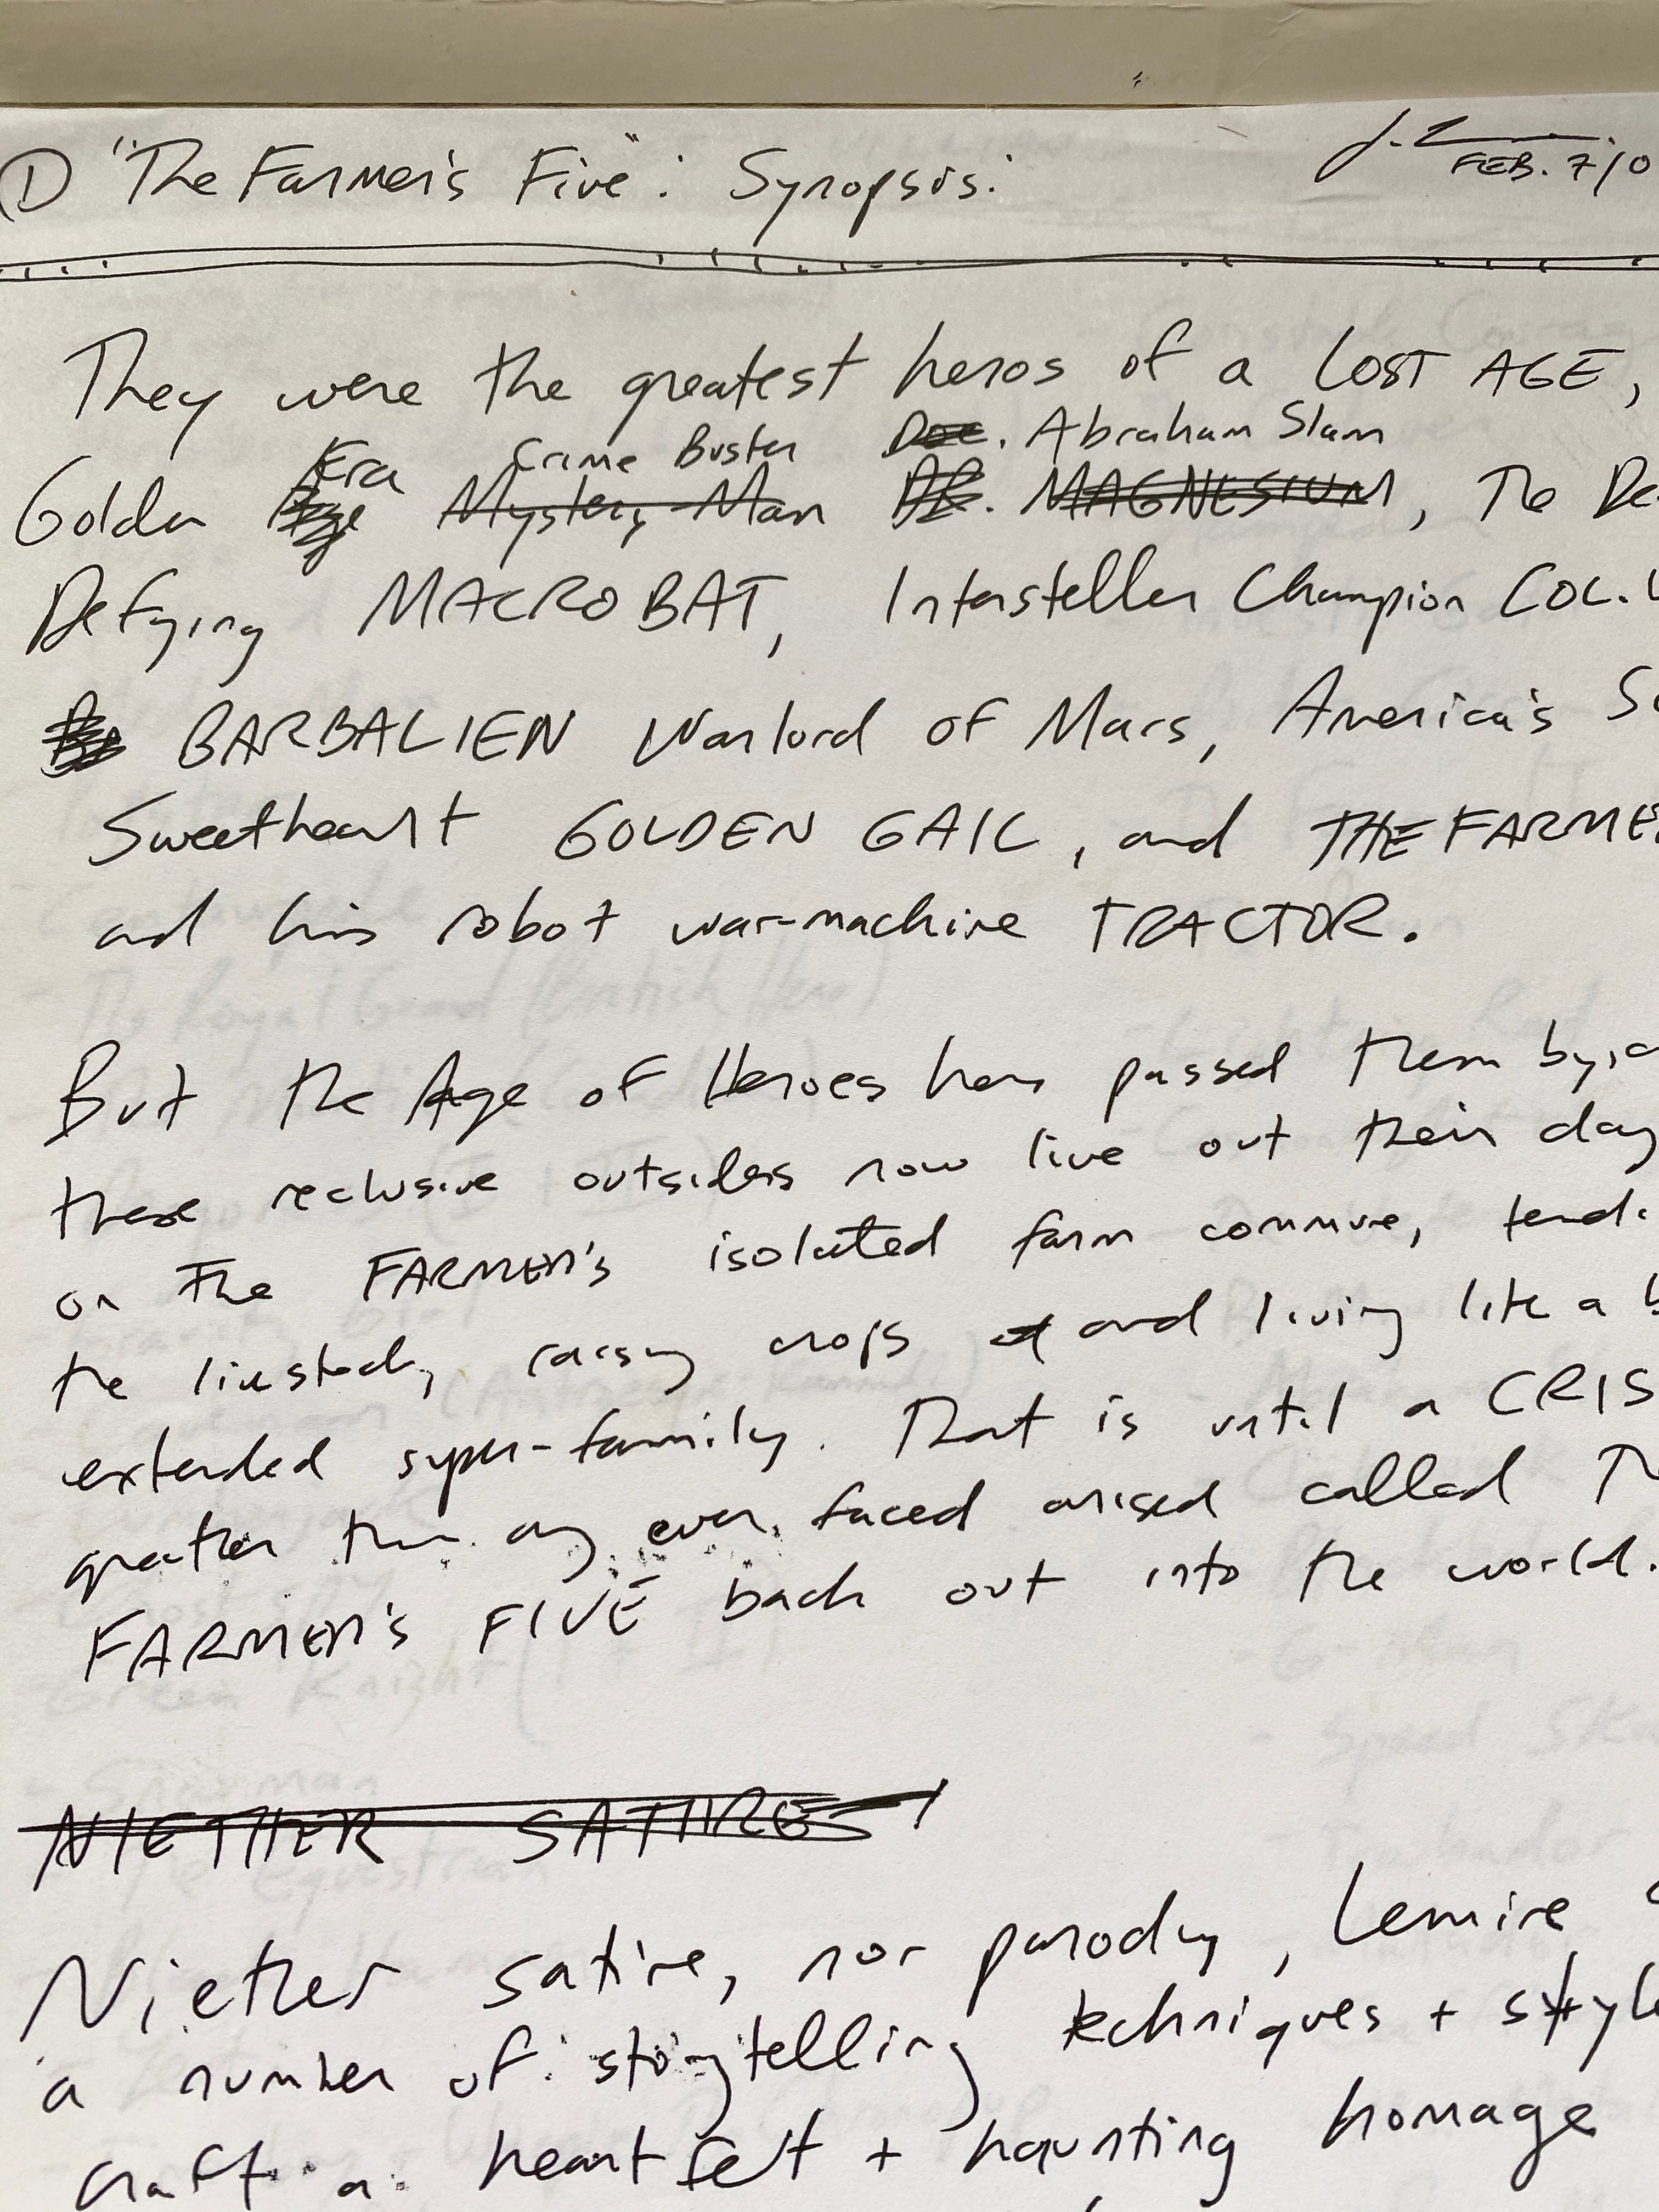 ① "The Farmer's Five": Synopsis:
FEB. 7/0
They were the greatest heros of a LOST AGE,
Era Crime Buster Doc. Abraham Slam
Golden Age Mystery Man DR. MAGNESIUM, The De
Defying MACROBAT, Intersteller Champion COL.
BARBALIEN Warlord of Mars, America's S
Sweetheart GOLDEN GAIL, and THE FARME
and his robot war-machine TRACTOR.
But the Age of Heroes has passed them by,
these reclusive outsiders now live out their day
on The FARMER's isolated farm commune, tend
the livestock, raising crops and living like a b
extended super-family. That is until a CRIS
greater than any ever faced arised called Th
FARMER's FIVE back out into the world.
NIETHER SATIIRES
Niether satire, nor parody, Lemire
a number of storytelling techniques + style
craft a heartfelt + haunting homage